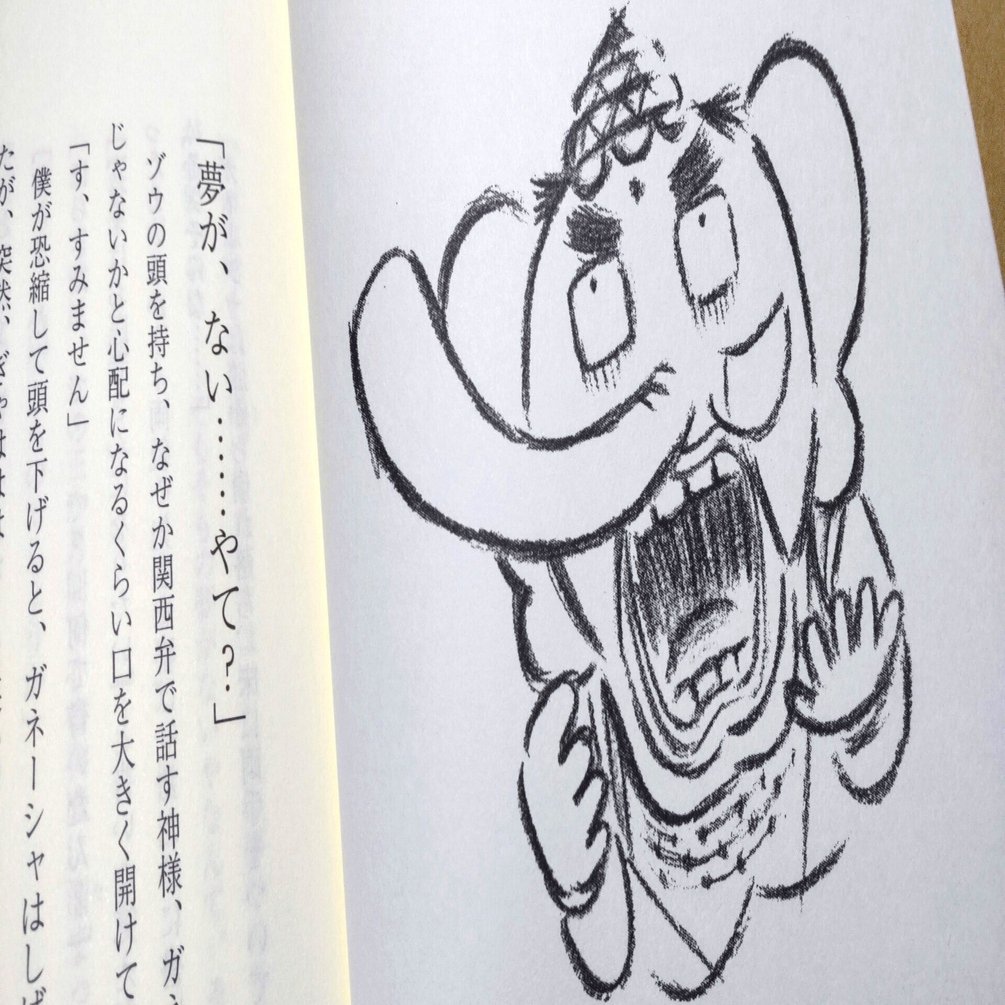 「夢が、ない………やて？」
ゾウの頭を持ち、なぜか関西弁で話す神様、ガネ
じゃないかと心配になるくらい口を大きく開けて
「す、すみません」
僕が恐縮して頭を下げると、ガネーシャはしば
たが、突然、ぎゃはは